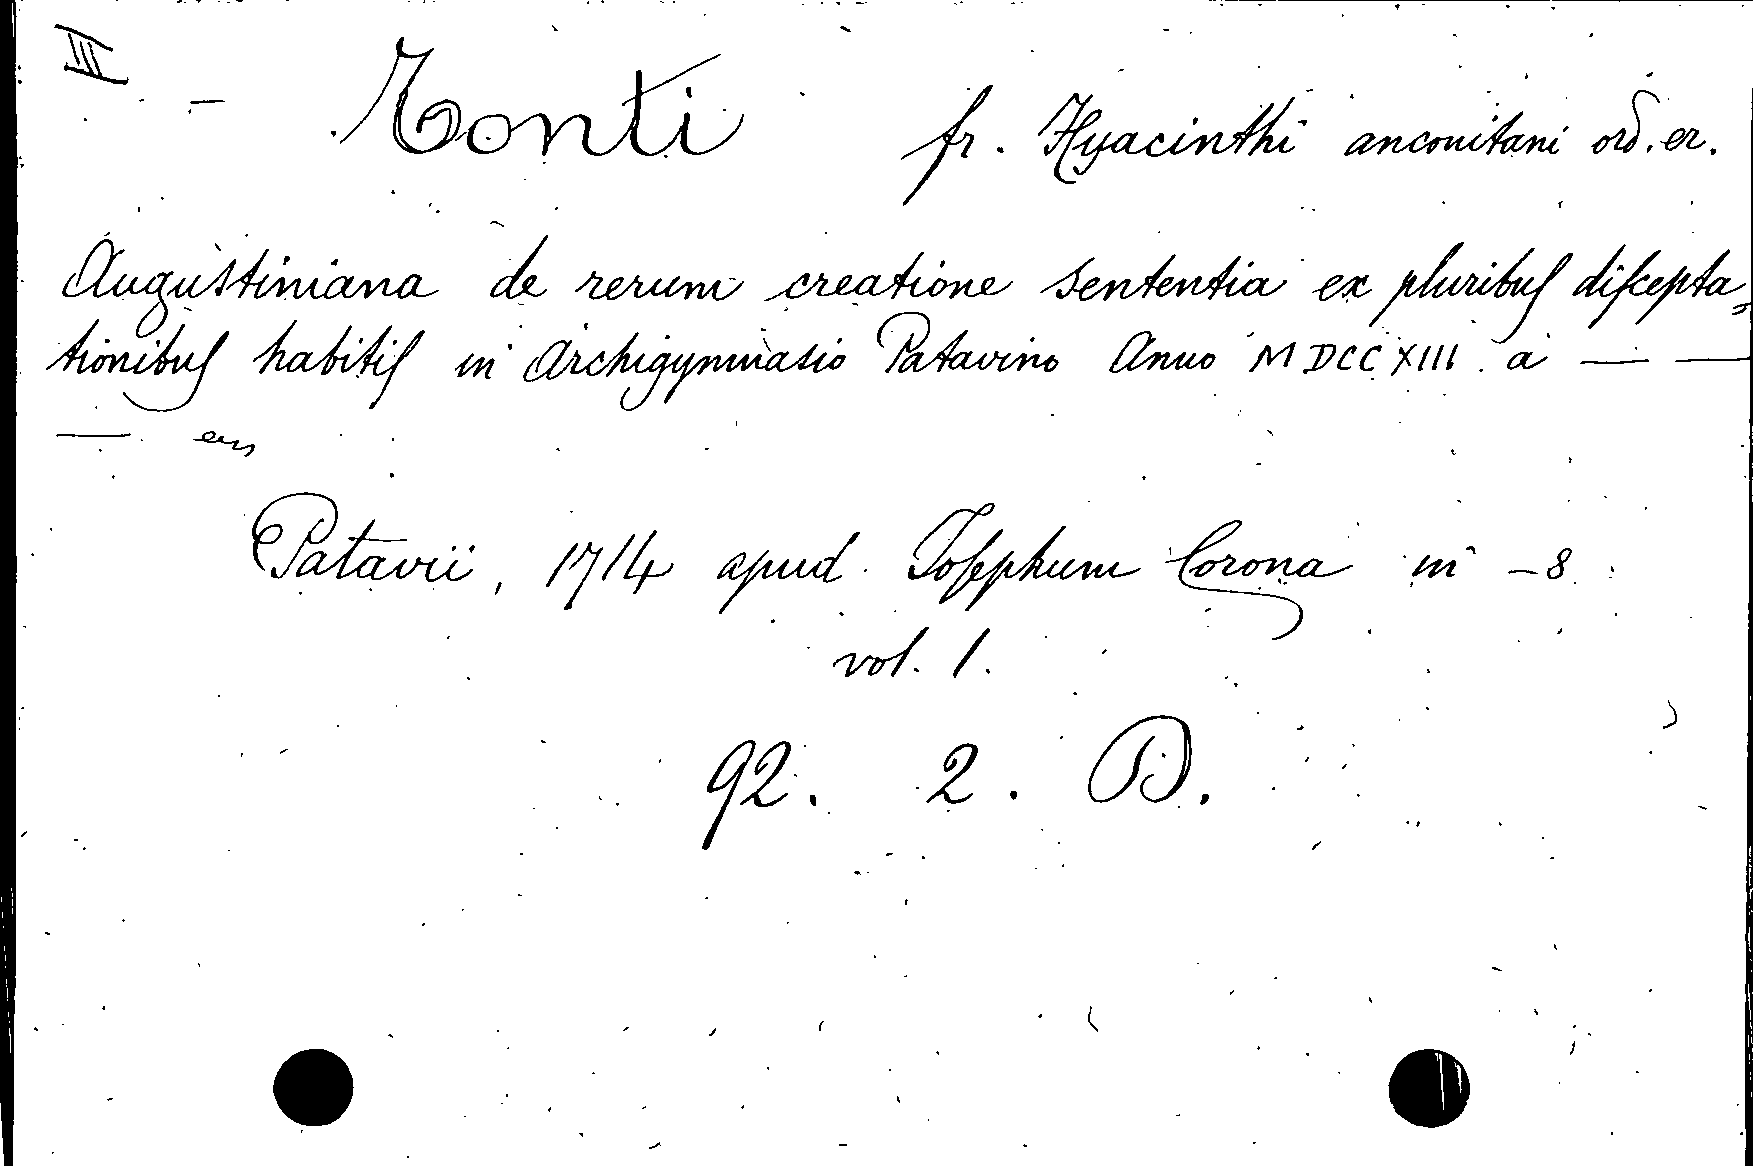 III
— Tonti fr. Hyacinthi anconitani ord. er.
Augustiniana de rerum creatione sententia ex pluribuſ diſcepta=
tionibuſ habitiſ in Archigymnasio Patavino Anno MDCCXIII a — —
—
Patavii, 1714 apud Joſephum Corona in -8
vol. 1.
92. 2. B.